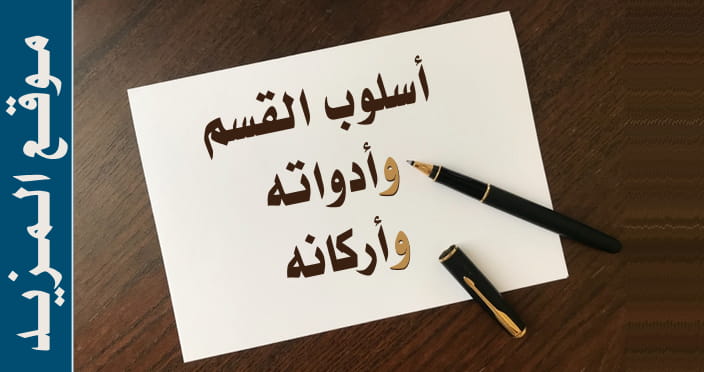 أسلوب القسم
وأدواته
وأركانه
موقع المزيد